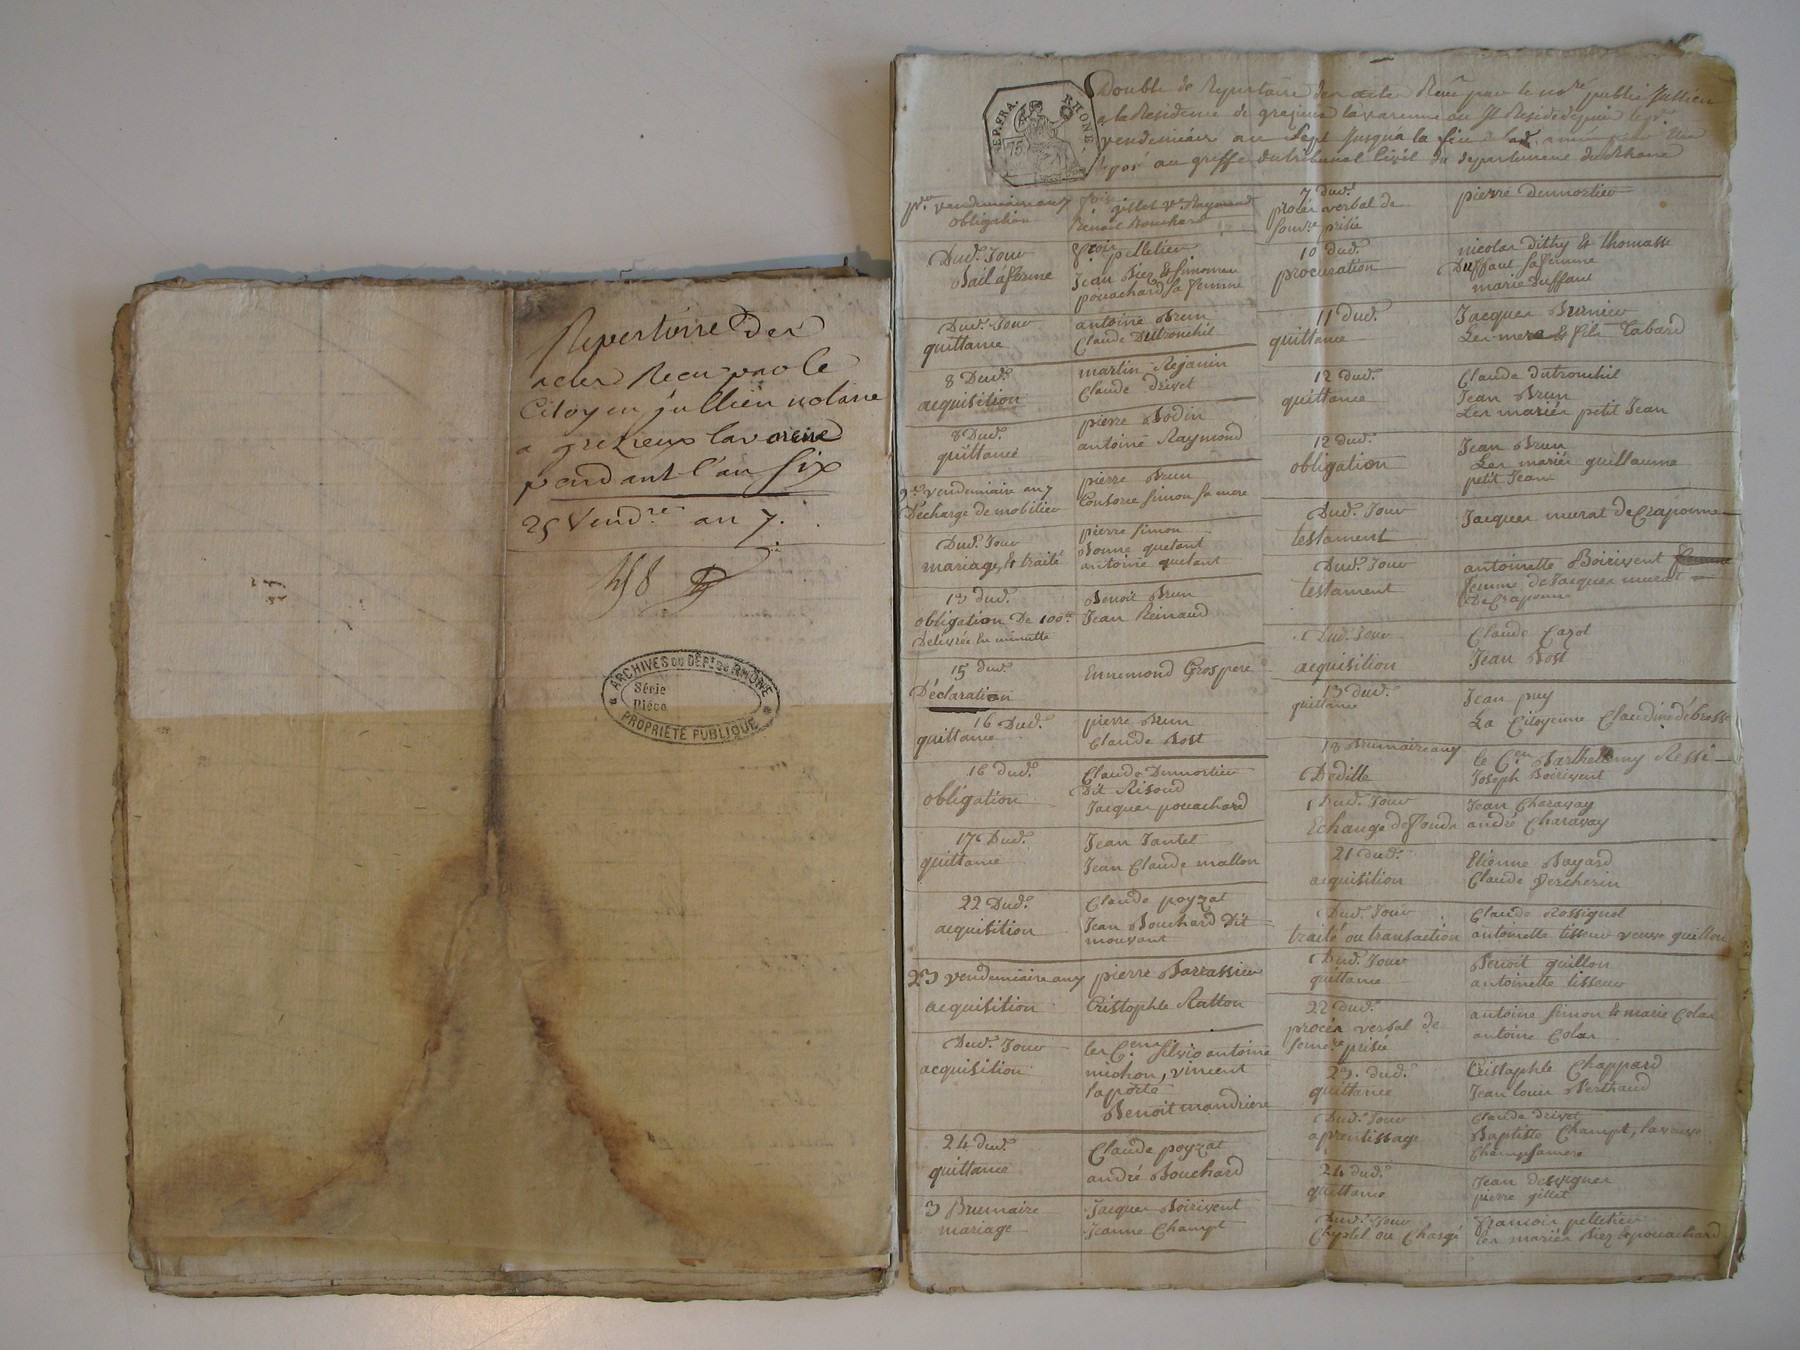 Repertoire des
actes Recus par le
Citoyen jullien notaire
a grezieux lavarenne
pendant l'an six
25 Vend.re an 7.
158
ARCHIVES DU DÉP.T DU RHÔNE
Série
Pièce
PROPRIÉTÉ PUBLIQUE
REP. FRA. RHONE
75
Double de Repertoire des actes Recu par le no.re public Jullien
a la Residence de grezieux lavarenne ou Il Reside depuis le pr.
vendemiaire an Sept Jusqu'a la fin de lad. année pour Etre
posé au greffe du tribunal Civil du departement du Rhone
pr. vendemiaire an 7
obligation
gillet ve Raymond
Benoit Bouchard
Dud. Jour
Bail a ferme
fçois pelletier
Jean Biez & Simonne
pouachard sa femme
Dud. Jour
quittance
antoine Brun
Claude Dutronchil
8 Dud.
acquisition
martin Rejanin
Claude drivet
8 Dud.
quittance
pierre Bodin
antoine Raymond
9 e vendemiaire an 7
Décharge de mobilier
pierre Brun
Consorce Simon sa mere
Dud. Jour
mariage, & traité
pierre Simon
Bonne quetant
antoine quetant
13 dud.
obligation De 100 tt
Delivrée En minutte
Benoit Brun
Jean Reinaud
15 dud.
Déclaration
Ennemond Grospere
16 Dud.
quittance
pierre Brun
Claude Bost
16 dud.
obligation
Claude Dumortier
Dit Risoud
Jacques pouachard
17e Dud.
quittance
Jean Jantet
Jean Claude mallon
22 Dud.
acquisition
Claude poyzat
Jean Bouchard Dit
mouvant
23 vendemiaire an 7
acquisition
pierre Barrassieu
Cristophle Ratton
Dud. Jour
acquisition
les C.ens Silvio antoine
michon, vincent
laporte
Benoit mandriere
24 dud.
quittance
Claude poyzat
andré Bouchard
3 Brumaire
mariage
Jacques Boirivent
Jeanne Champt
7 dud.
procès verbal de
prisée
pierre Dumortier
10 dud.
procuration
nicolas dithy & thomasse
Duffaut sa femme
marie Duffaut
11 dud.
quittance
Jacques Burnier
Les mere & fils Tabard
12 dud.
quittance
Claude dutronchil
Jean Brun
Les mariés petit Jean
12 dud.
obligation
Jean Brun
Les mariés guillaume
petit Jean
Dud. Jour
testament
Jacques murat de Craponne
Dud. Jour
testament
antoinette Boirivent femme
femme de Jacques murat
De Craponne
Dud. Jour
acquisition
Claude Cazot
Jean Bost
13 dud.
quittance
Jean puy
La Citoyenne Claudine débrosse
18 Brumaire an 7
Déditte
le C.en Barthellemy Ressi
Joseph Boirivent
Dud. Jour
Echange de fonds
Jean Charavay
andré Charavay
21 dud.
acquisition
Etienne Bayard
Claude Vercherin
Dud. Jour
traité ou transaction
Claude Rossignol
antoinette tisseur veuve guillon
Dud. Jour
quittance
Benoit guillon
antoinette tisseur
22 dud.
procès verbal de
prisée
antoine Simon & marie Colas
antoine Colas
23. dud.
quittance
Cristophle Chappard
Jean louis Berthaud
Dud. Jour
aprentissage
Claude drivet
Baptiste Champt,
24 dud.
quittance
Jean desvignes
pierre gillet
Dud. Jour
Cheptel ou Chargé
françois pelletier
les mariés Biez & pouachard